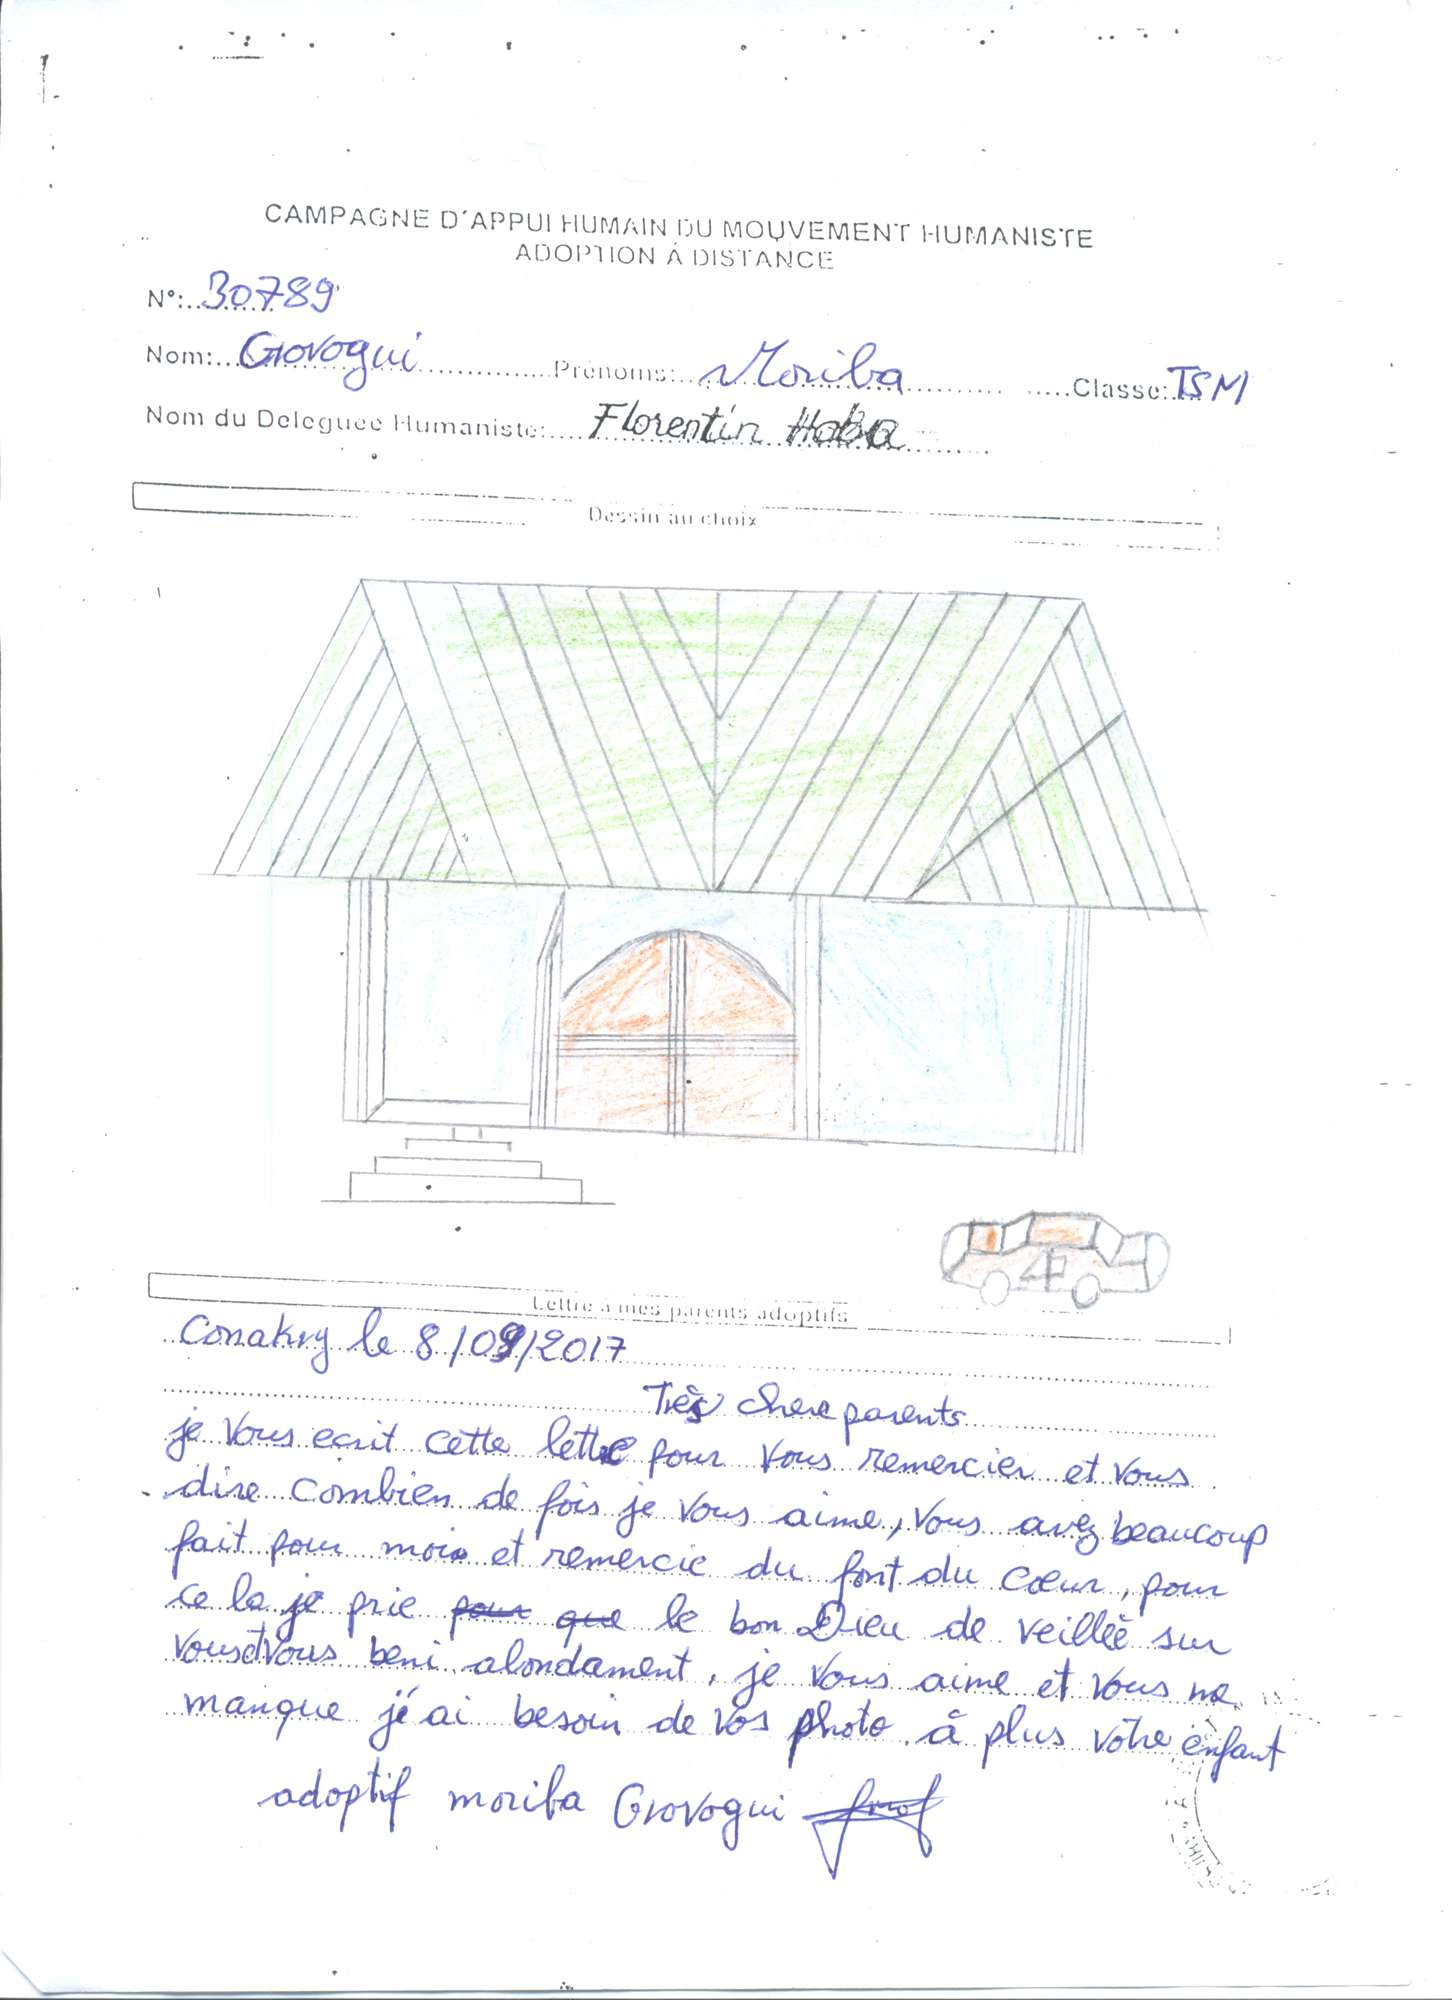 CAMPAGNE D'APPUI HUMAIN DU MOUVEMENT HUMANISTE
ADOPTION À DISTANCE
N°: 30789
Nom: Govogui Prénoms: Moriba Classe: TSM
Nom du Deleguee Humaniste: Florentin Haba
Dessin au choix
Lettre a mes parents adoptifs
Conakry le 8/09/2017
Très chere parents
je vous ecrit cette lettre pour vous remercier et vous
dire combien de fois je vous aime, vous avez beaucoup
fait pour moi et remercie du font du cœur, pour
ce la je prie pour que le bon Dieu de veillée sur
vous et vous beni abondament, je vous aime et vous me
manque j'ai besoin de vos photo. à plus votre enfant
adoptif moriba Govogui